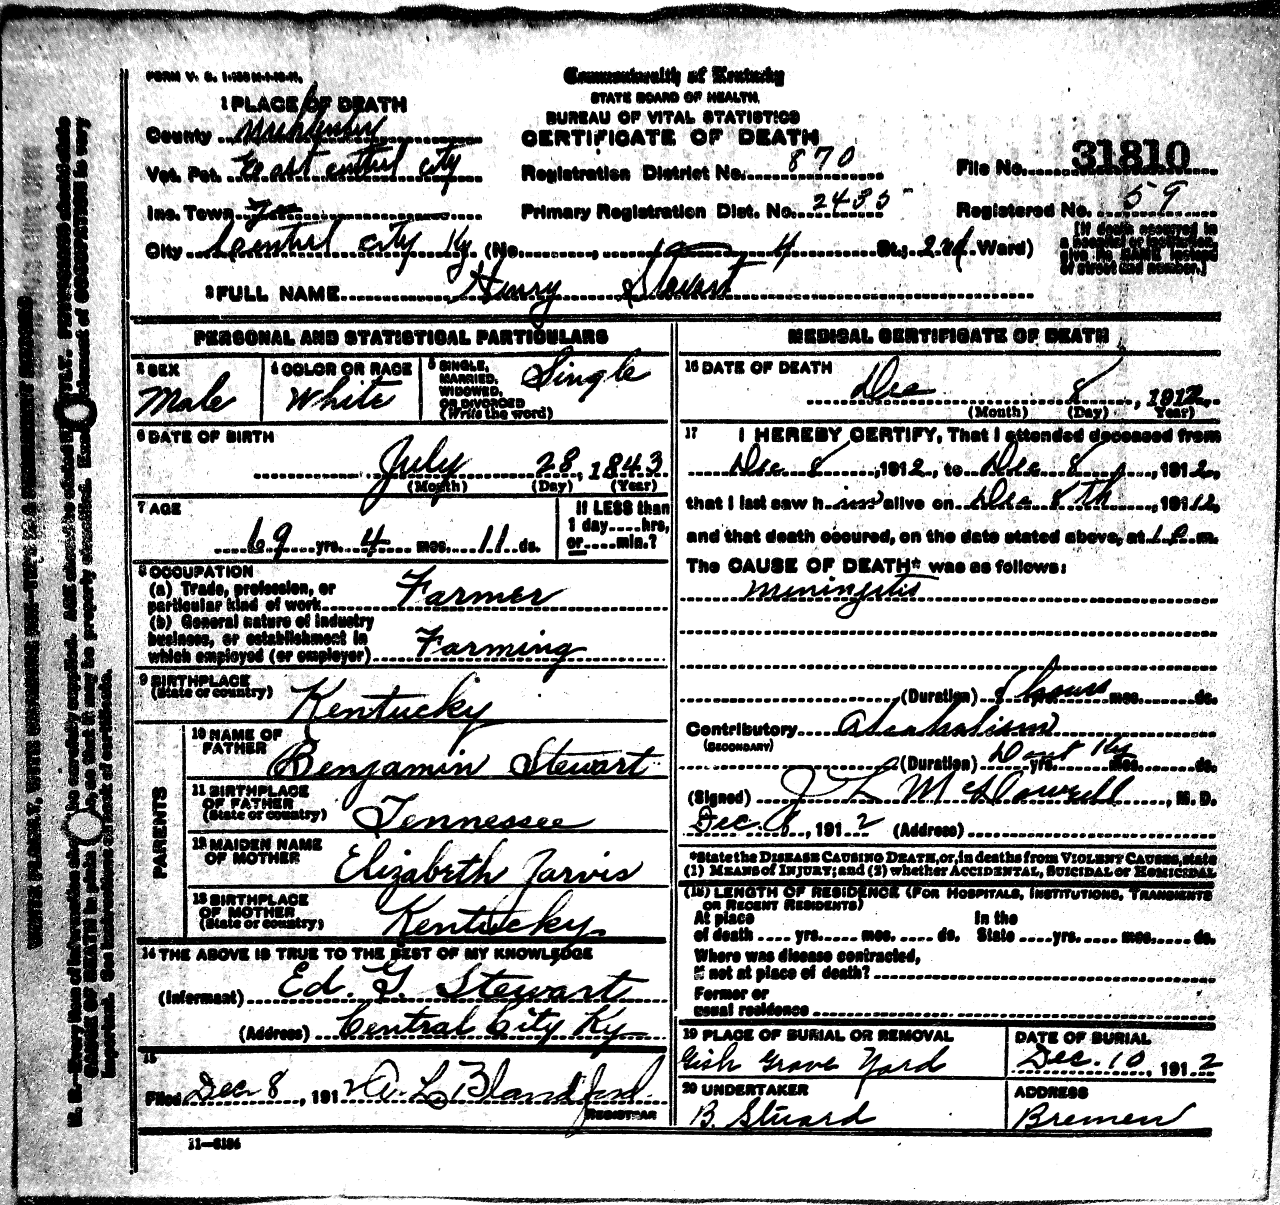 FORM V. S. 1-
Commonwealth of Kentucky
STATE BOARD OF HEALTH,
BUREAU OF VITAL STATISTICS
CERTIFICATE OF DEATH
1 PLACE OF DEATH
County
Vot. Pct. East Central City
Ins. Town
City Central City Ky (No. , 4 St.; 2nd Ward)
Registration District No. 870
Primary Registration Dist. No. 2435
File No. 31810
Registered No. 59
[If death occurred in
a hospital or institution,
give its NAME instead
of street and number.]
2 FULL NAME Henry Stewart
PERSONAL AND STATISTICAL PARTICULARS
3 SEX
Male
4 COLOR OR RACE
White
5 SINGLE,
MARRIED,
WIDOWED,
OR DIVORCED
(Write the word)
Single
6 DATE OF BIRTH
July 28, 1843
(Month) (Day) (Year)
7 AGE
69 yrs. 4 mos. 11 ds.
If LESS than
1 day....hrs,
or.....min.?
8 OCCUPATION
(a) Trade, profession, or
particular kind of work Farmer
(b) General nature of industry
business, or establishment in
which employed (or employer) Farming
9 BIRTHPLACE
(State or country) Kentucky
PARENTS
10 NAME OF
FATHER Benjamin Stewart
11 BIRTHPLACE
OF FATHER
(State or country) Tennessee
12 MAIDEN NAME
OF MOTHER Elizabeth Jarvis
13 BIRTHPLACE
OF MOTHER
(State or country) Kentucky.
14 THE ABOVE IS TRUE TO THE BEST OF MY KNOWLEDGE
(Informant) Ed. G. Stewart
(Address) Central City Ky
15
Filed Dec 8, 1912 L Bland
REGISTRAR
11—3184
MEDICAL CERTIFICATE OF DEATH
16 DATE OF DEATH
Dec 8, 1912
(Month) (Day) (Year)
17 I HEREBY CERTIFY, That I attended deceased from
Dec 8, 1912, to Dec 8, 1912,
that I last saw him alive on Dec 8th, 1912,
and that death occured, on the date stated above, at 1 P. m.
The CAUSE OF DEATH* was as follows:
Miningitis
(Duration) hours mos. ds.
Contributory Alcoholism
(SECONDARY)
(Duration) yrs. mos. ds.
(Signed) J L McDowell, M. D.
Dec. 8, 1912 (Address)
*State the DISEASE CAUSING DEATH, or, in deaths from VIOLENT CAUSES, state
(1) MEANS of INJURY; and (2) whether ACCIDENTAL, SUICIDAL or HOMICIDAL
(18) LENGTH OF RESIDENCE (FOR HOSPITALS, INSTITUTIONS, TRANSIENTS
OR RECENT RESIDENTS)
At place In the
of death .... yrs..... mos..... ds. State ....yrs..... mos..... ds.
Where was disease contracted,
if not at place of death?
Former or
usual residence
19 PLACE OF BURIAL OR REMOVAL
Gish Grave Yard
DATE OF BURIAL
Dec. 10, 1912
20 UNDERTAKER
B. Stuard
ADDRESS
Bremen
N. B.—Every item of information should be carefully supplied. AGE should be stated EXACTLY. PHYSICIANS should state
CAUSE OF DEATH in plain terms, so that it may be properly classified. Exact statement of OCCUPATION is very
important. See instructions on back of certificate.